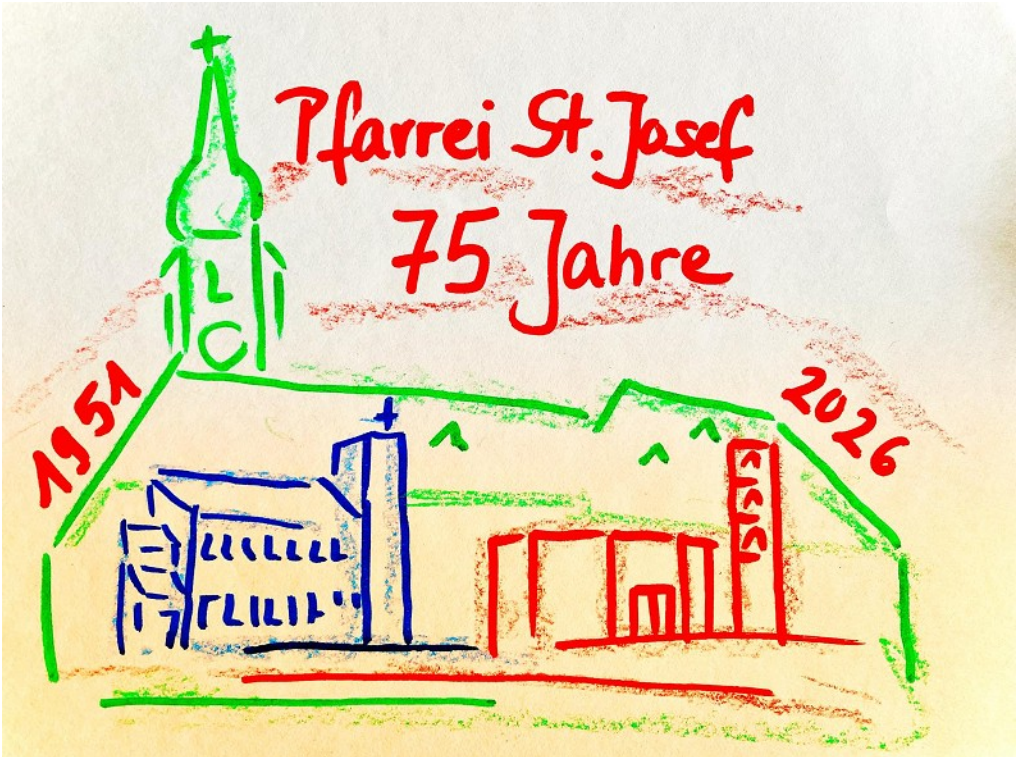 Pfarrei St. Josef
75 Jahre
1951
2026